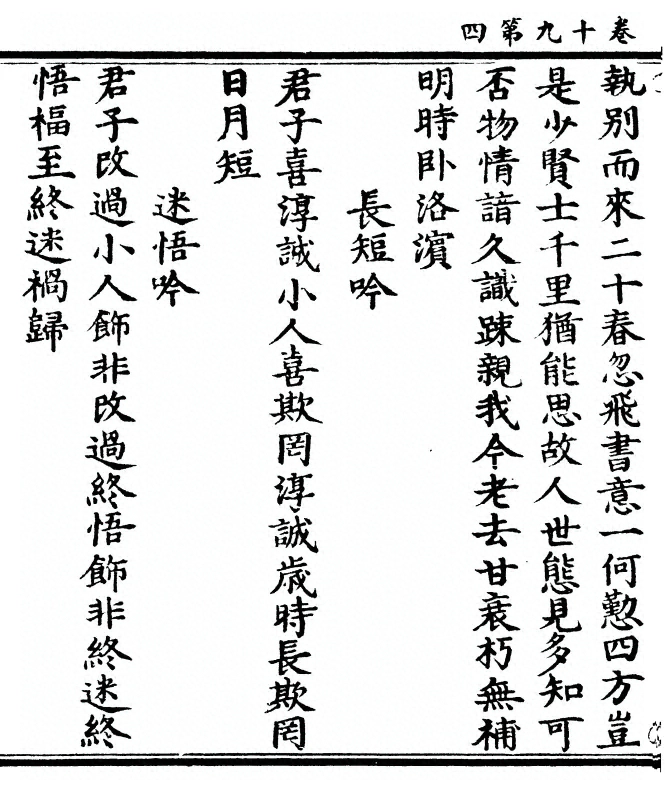 卷十九第四
執别而來二十春忽飛書意一何懃四方豈
是少賢士千里猶能思故人世態見多知可
否物情諳久識踈親我今老去甘衰朽無補
明時卧洛濱
長短吟
君子喜淳誠小人喜欺罔淳誠歲時長欺罔
日月短
迷悟吟
君子改過小人飾非改過終悟飾非終迷終
悟福至終迷禍歸